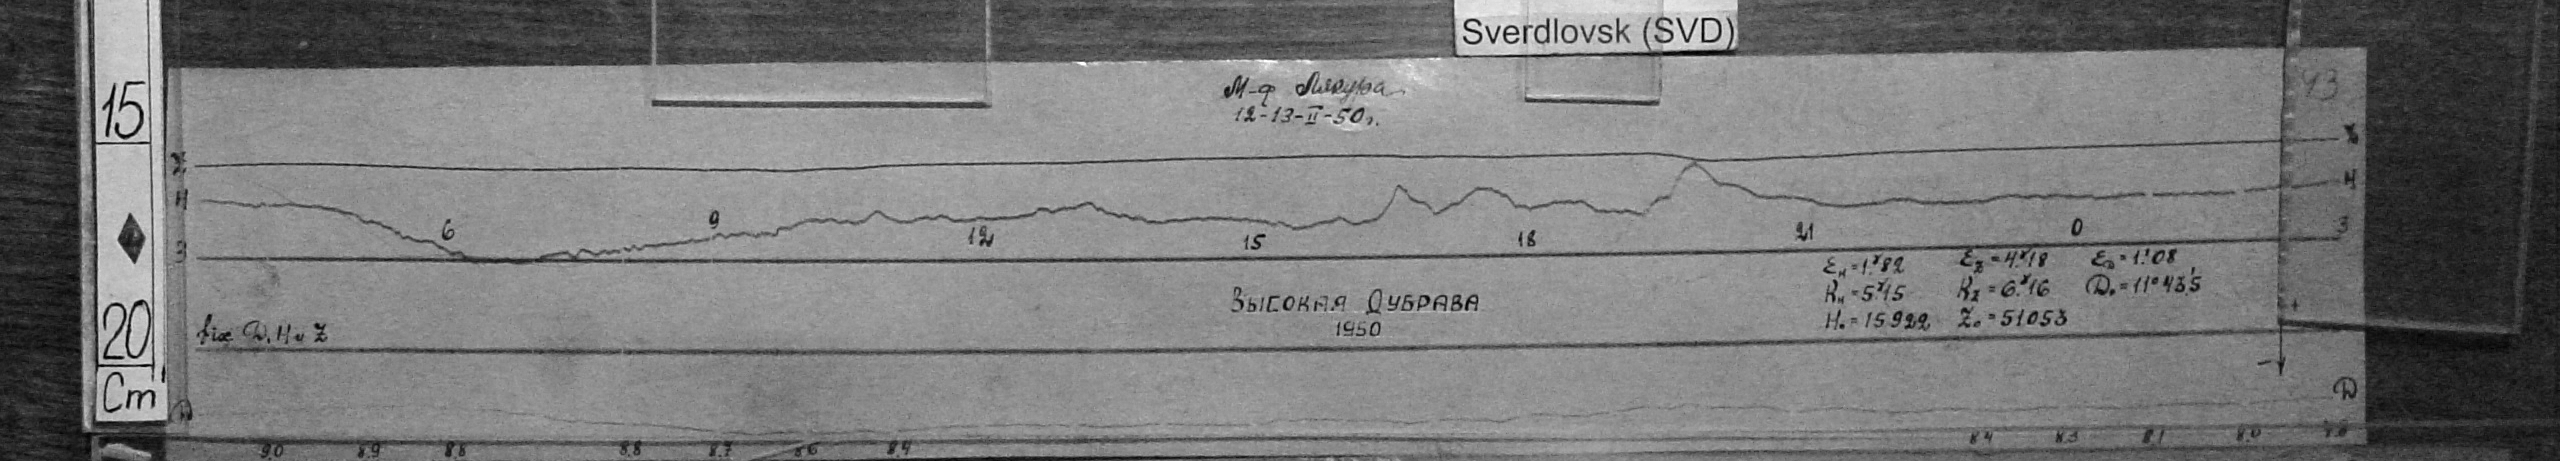 Sverdlovsk (SVD)
15
20
Cm
М-ф Якуба
12-13-II-50г.
43
Z
Z
H
H
3
3
6
9
12
15
18
21
0
εн=1.ˠ82 εz=4.ˠ18 εD=1.'08
Kн=5.ˠ15 Kz=6.ˠ16 D₀=11°43.'5
H₀=15922 Z₀=51053
ВЫСОКАЯ ДУБРАВА
1950
D, H и Z
D
D
9.0 8.9 8.8 8.8 8.7 8.6 8.4 8.4 8.3 8.1 8.0